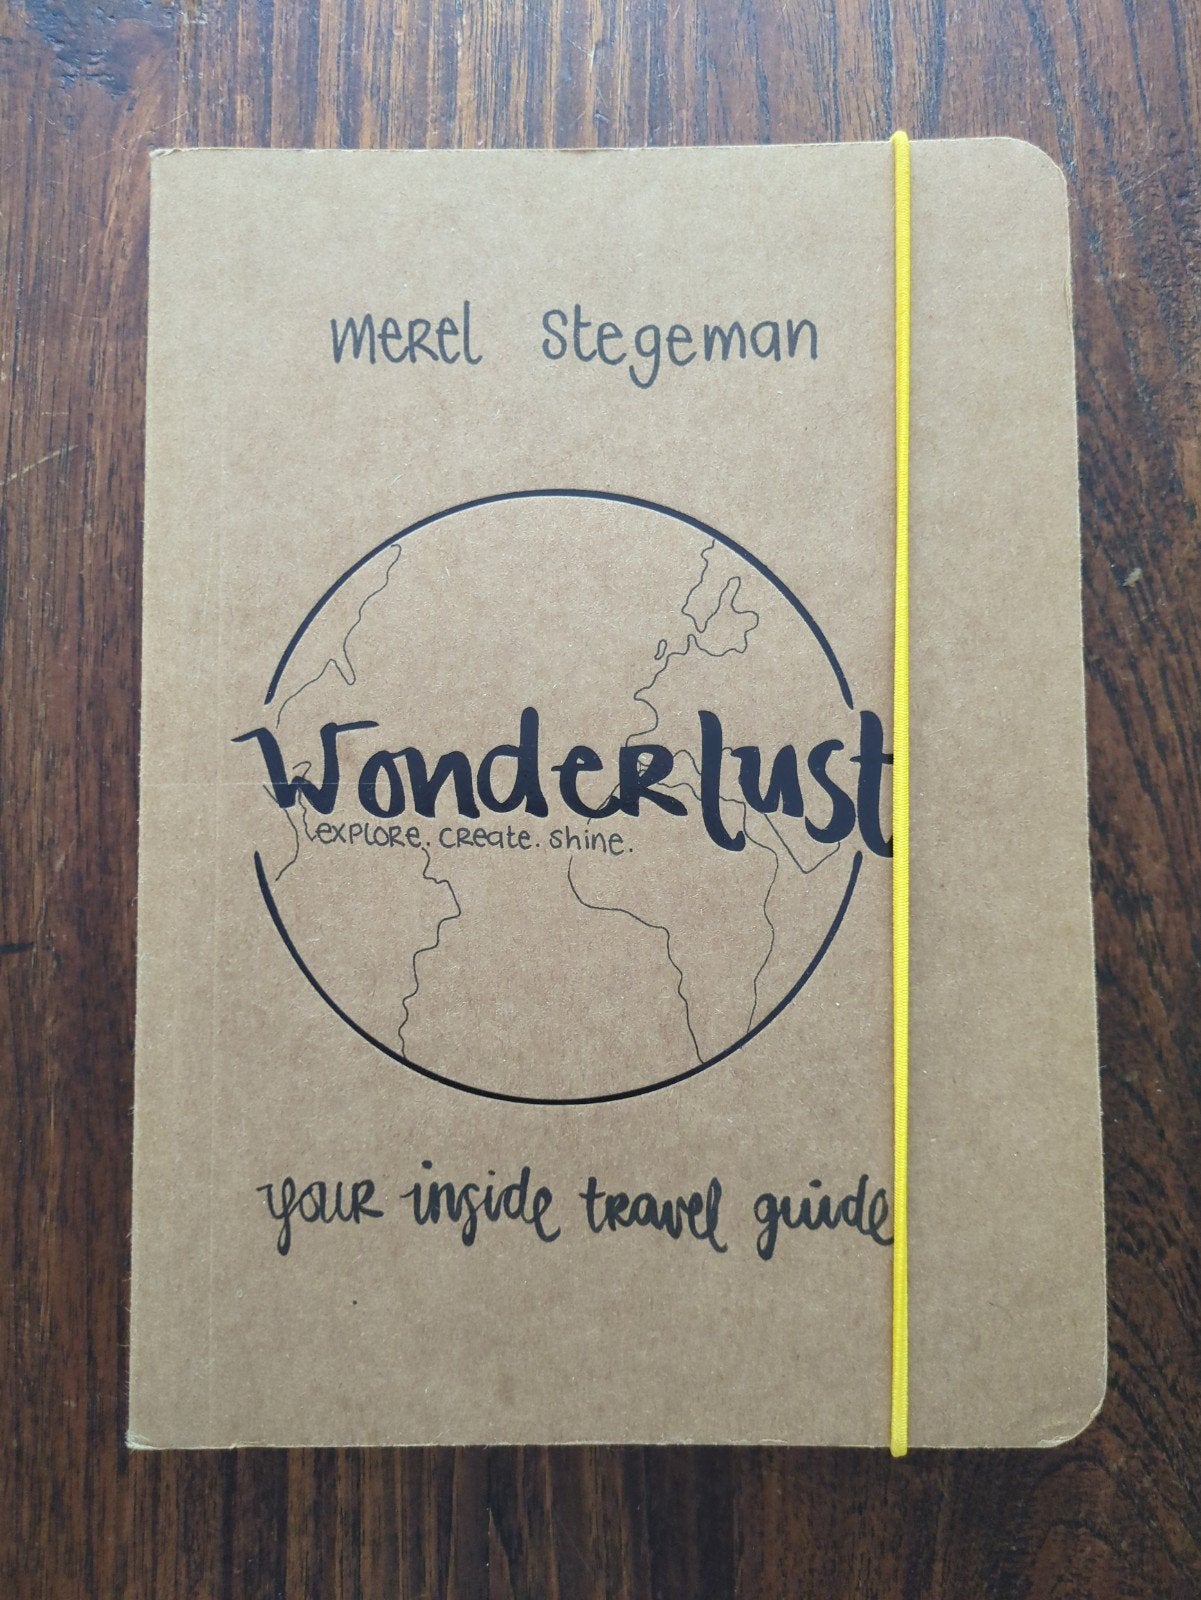 Merel Stegeman
Wonderlust
explore. create. shine.
your inside travel guide